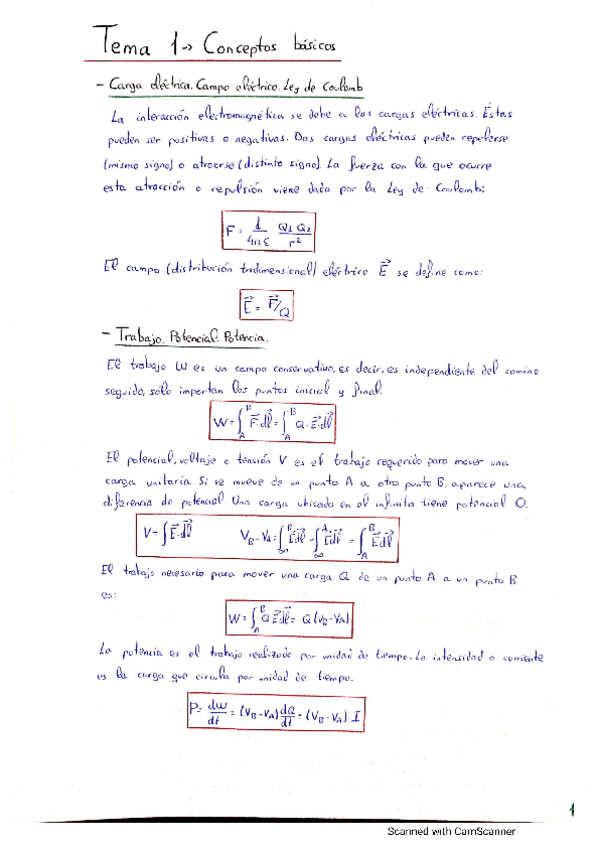 Tema 1→ Conceptos básicos
- Carga eléctrica. Campo eléctrico. Ley de Coulomb
La interacción electromagnética se debe a las cargas eléctricas. Estas
pueden ser positivas o negativas. Dos cargas eléctricas pueden repelerse
(mismo signo) o atraerse (distinto signo). La fuerza con la que ocurre
esta atracción o repulsión viene dada por la Ley de Coulomb:
F = 1/4πε Q1 Q2/r²
El campo (distribución tridimensional) eléctrico E⃗ se define como:
E⃗ = F⃗/Q
- Trabajo. Potencial. Potencia.
El trabajo W es un campo conservativo, es decir, es independiente del camino
seguido, sólo importan los puntos inicial y final.
W = ∫_A^B F⃗·dl⃗ = ∫_A^B Q·E⃗·dl⃗
El potencial, voltaje o tensión V es el trabajo requerido para mover una
carga unitaria. Si se mueve de un punto A a otro punto B, aparece una
diferencia de potencial. Una carga ubicada en el infinito tiene potencial 0.
V = ∫E⃗·dl⃗ V_B - V_A = ∫_∞^B E⃗dl⃗ - ∫_∞^A E⃗dl⃗ = ∫_A^B E⃗dl⃗
El trabajo necesario para mover una carga Q de un punto A a un punto B
es:
W = ∫_A^B Q E⃗dl⃗ = Q (V_B - V_A)
La potencia es el trabajo realizado por unidad de tiempo. La intensidad o corriente
es la carga que circula por unidad de tiempo.
P = dw/dt = (V_B - V_A) dQ/dt = (V_B - V_A)·I
1
Scanned with CamScanner